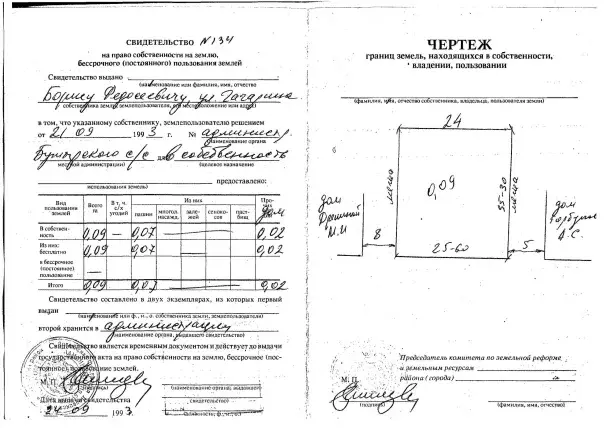 СВИДЕТЕЛЬСТВО № 134
на право собственности на землю,
бессрочного (постоянного) пользования землей
Свидетельство выдано
(наименование или фамилия, имя, отчество
Борису Федосеевичу, ул. Гагарина
собственника земли, землепользователя, его местоположение или адрес)
в том, что указанному собственнику, землепользователю решением
от 21 09 1993 г. № администр.
(наименование органа
с/с для в собственность
местной администрации) (целевое назначение
предоставлено:
использования земель)
Вид пользования землей
Всего га
В т. ч. с/х угодий
Из них
пашни
многол. насажд.
залежей
сенокосов
пастбищ
Прочих дом
В собственность 0,09 — 0,07 0,02
Из них: бесплатно 0,09 0,07 0,02
в бессрочное (постоянное) пользование —
Итого 0,09 0,07 0,02
Свидетельство составлено в двух экземплярах, из которых первый
выдан
(наименование или ф., и., о. собственника земли, землепользователя)
второй хранится в администрации
(наименование органа, выдавшего свидетельство)
Свидетельство является временным документом и действует до выдачи
государственного акта на право собственности на землю, бессрочное (постоянное)
пользование землей.
М. П.
(подпись) (наименование органа, выдавшего
Дата выдачи свидетельства
24 09 1993.
должность, ф., и., о.)
ЧЕРТЕЖ
границ земель, находящихся в собственности,
владении, пользовании
(фамилия, имя, отчество собственника, владельца, пользователя земли)
24
межа
0,09
55-30
межа
дом
М.И
8
25-60
5
дом
А.С.
Председатель комитета по земельной реформе
и земельным ресурсам
района (города)
М. П.
(подпись) (фамилия, имя, отчество)